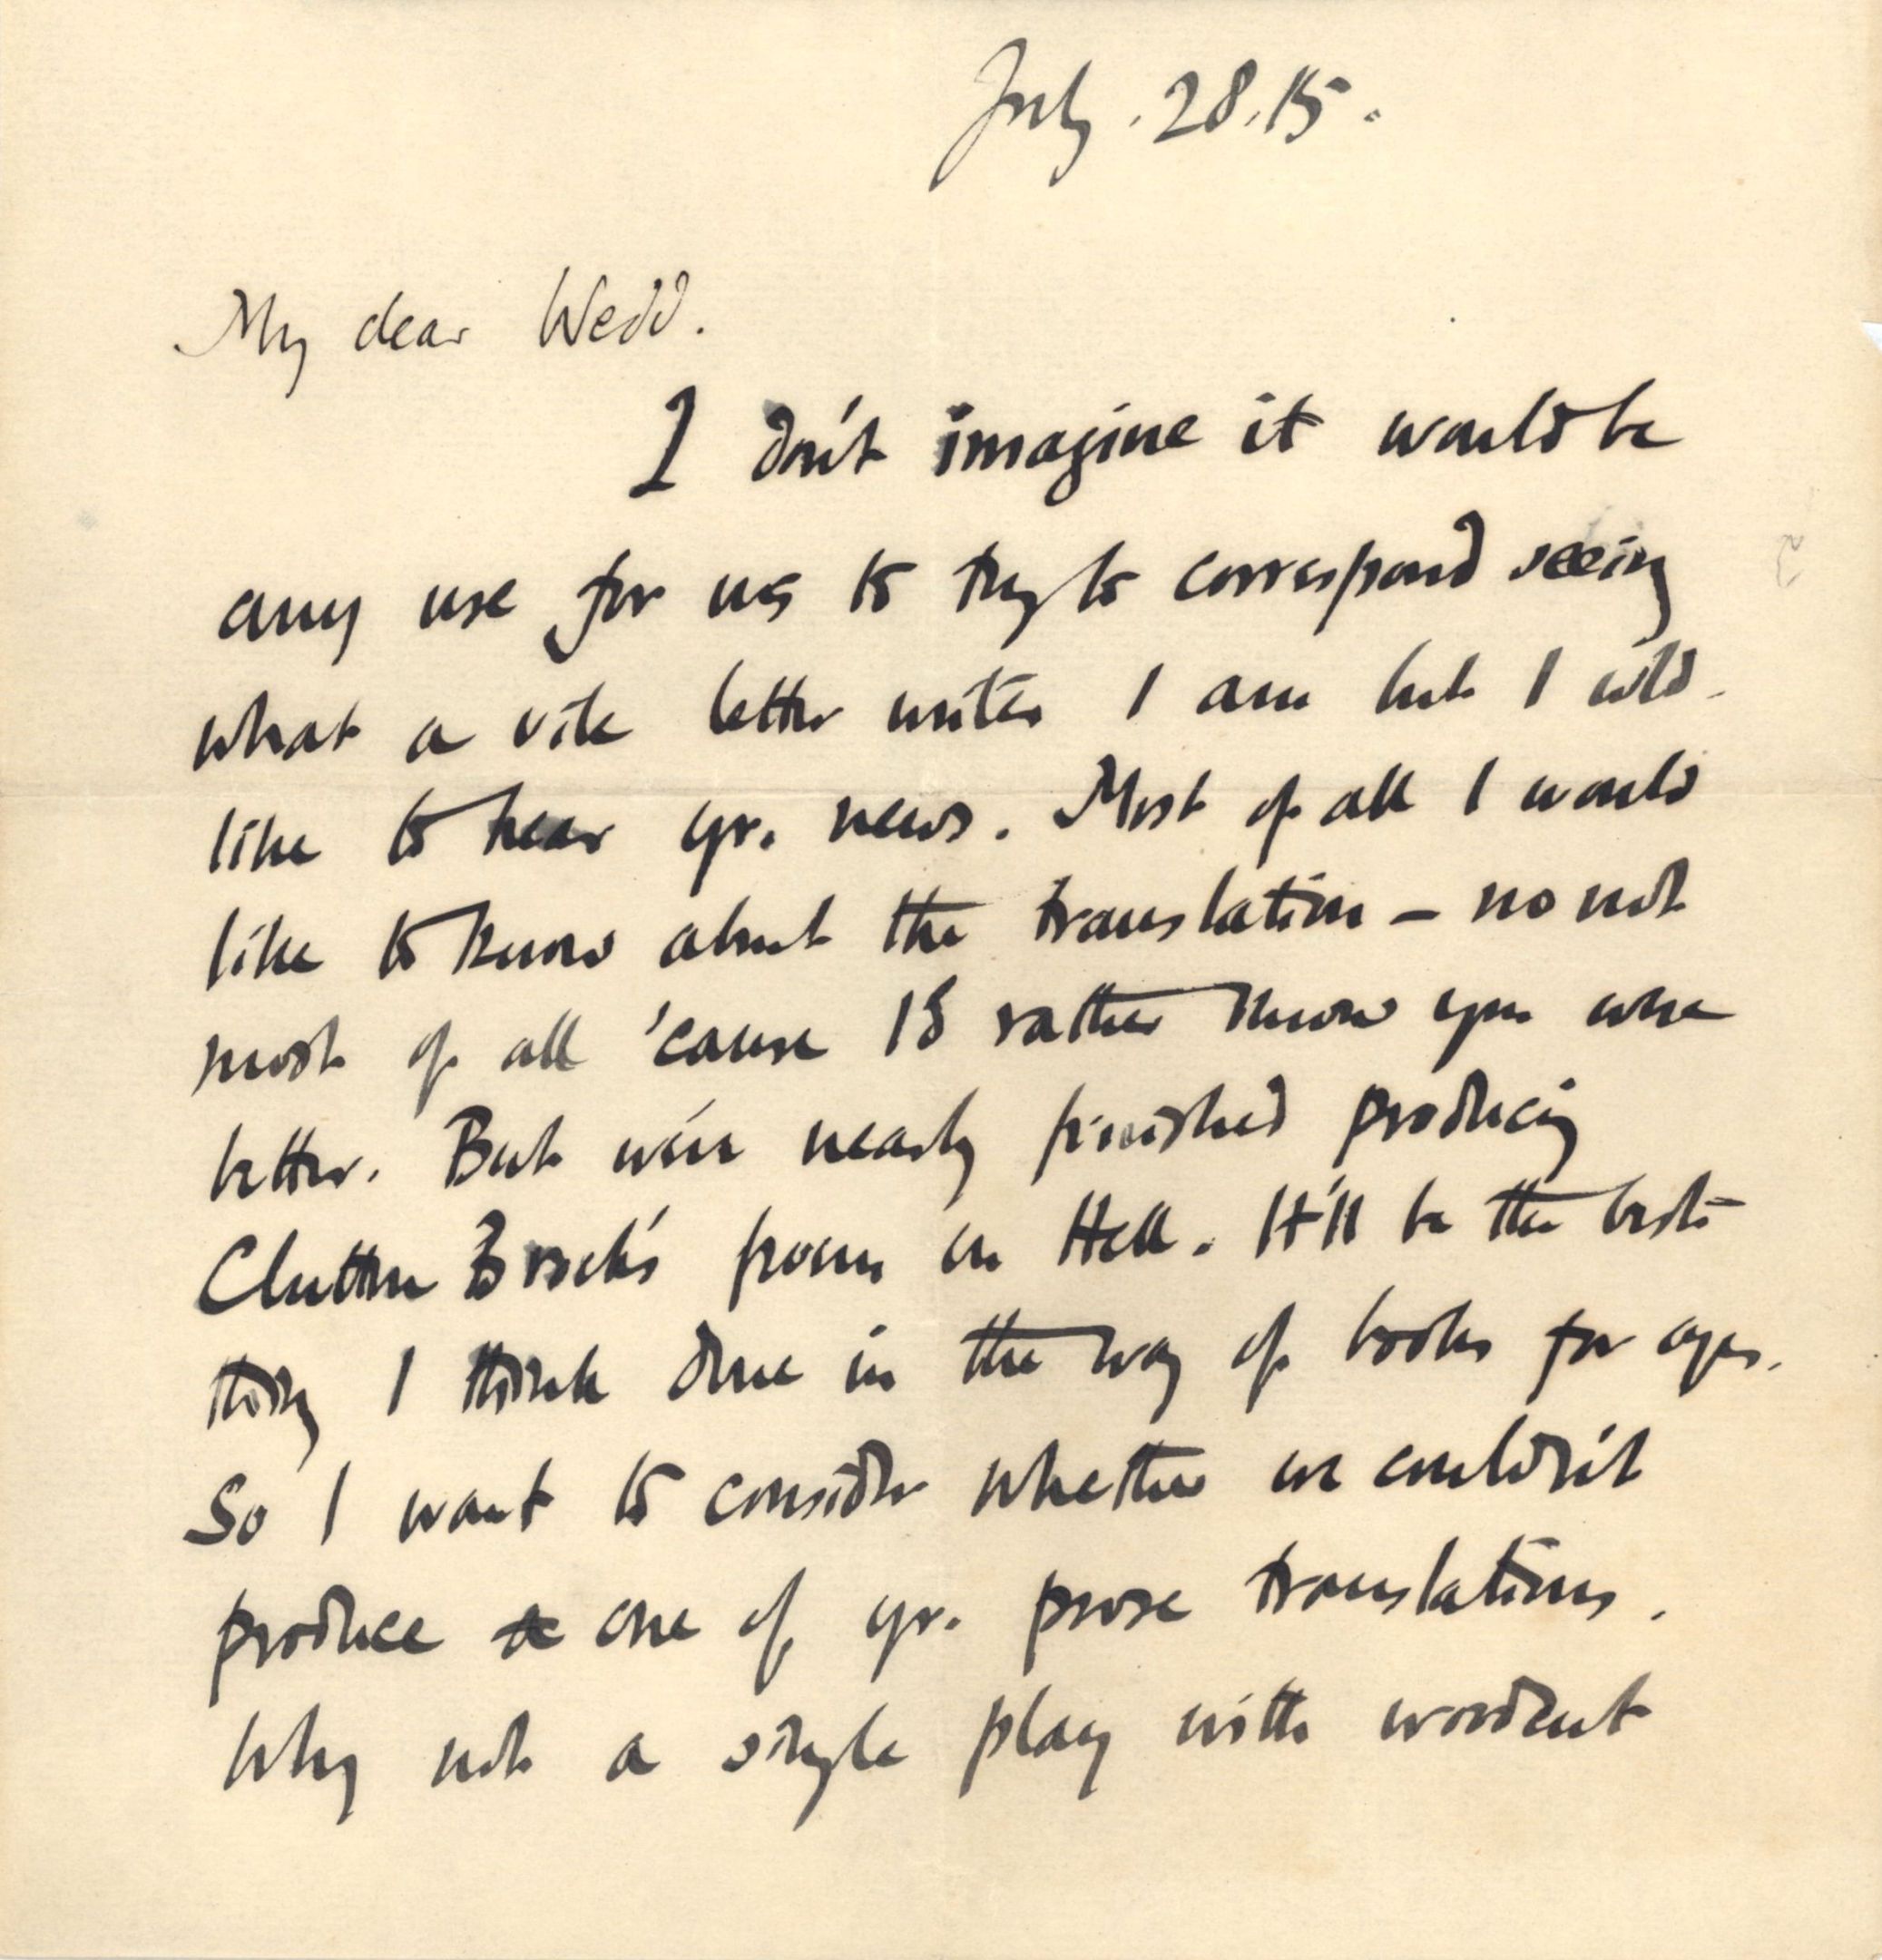 July . 28 . 15 .
My dear Wedd .
I don't imagine it would be
any use for us to try to correspond seeing
what a vile letter writer I am but I wld .
like to hear yr. news . Most of all I would
like to know about the translation – no not
most of all 'cause I'd rather know you were
better . But we're nearly finished producing
Clutton Brock's poem on Hell . It'll be the best
thing I think done in the way of books for ages .
So I want to consider whether we couldn't
produce one of yr. prose translations .
Why not a single play with woodcut